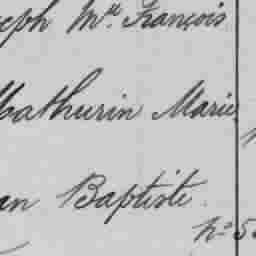 eph Mie François
Mathurin Marie
an Baptiste
no 5